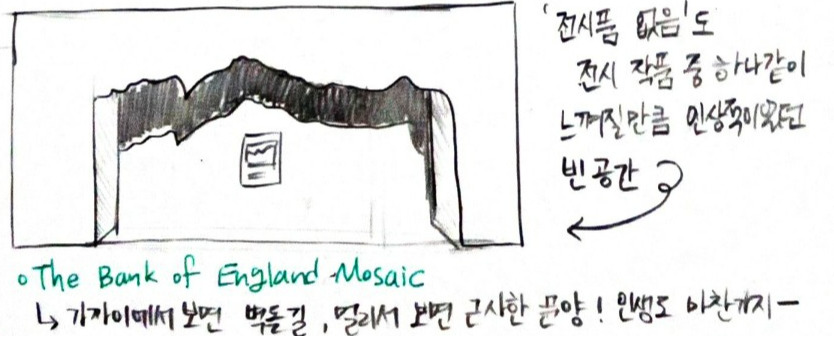 '전시품 없음'도
전시 작품 중 하나같이
느껴질만큼 인상적이었던
빈 공간
The Bank of England Mosaic
↳ 가까이에서 보면 벽돌길, 멀리서 보면 근사한 문양! 인생도 마찬가지ㅡ